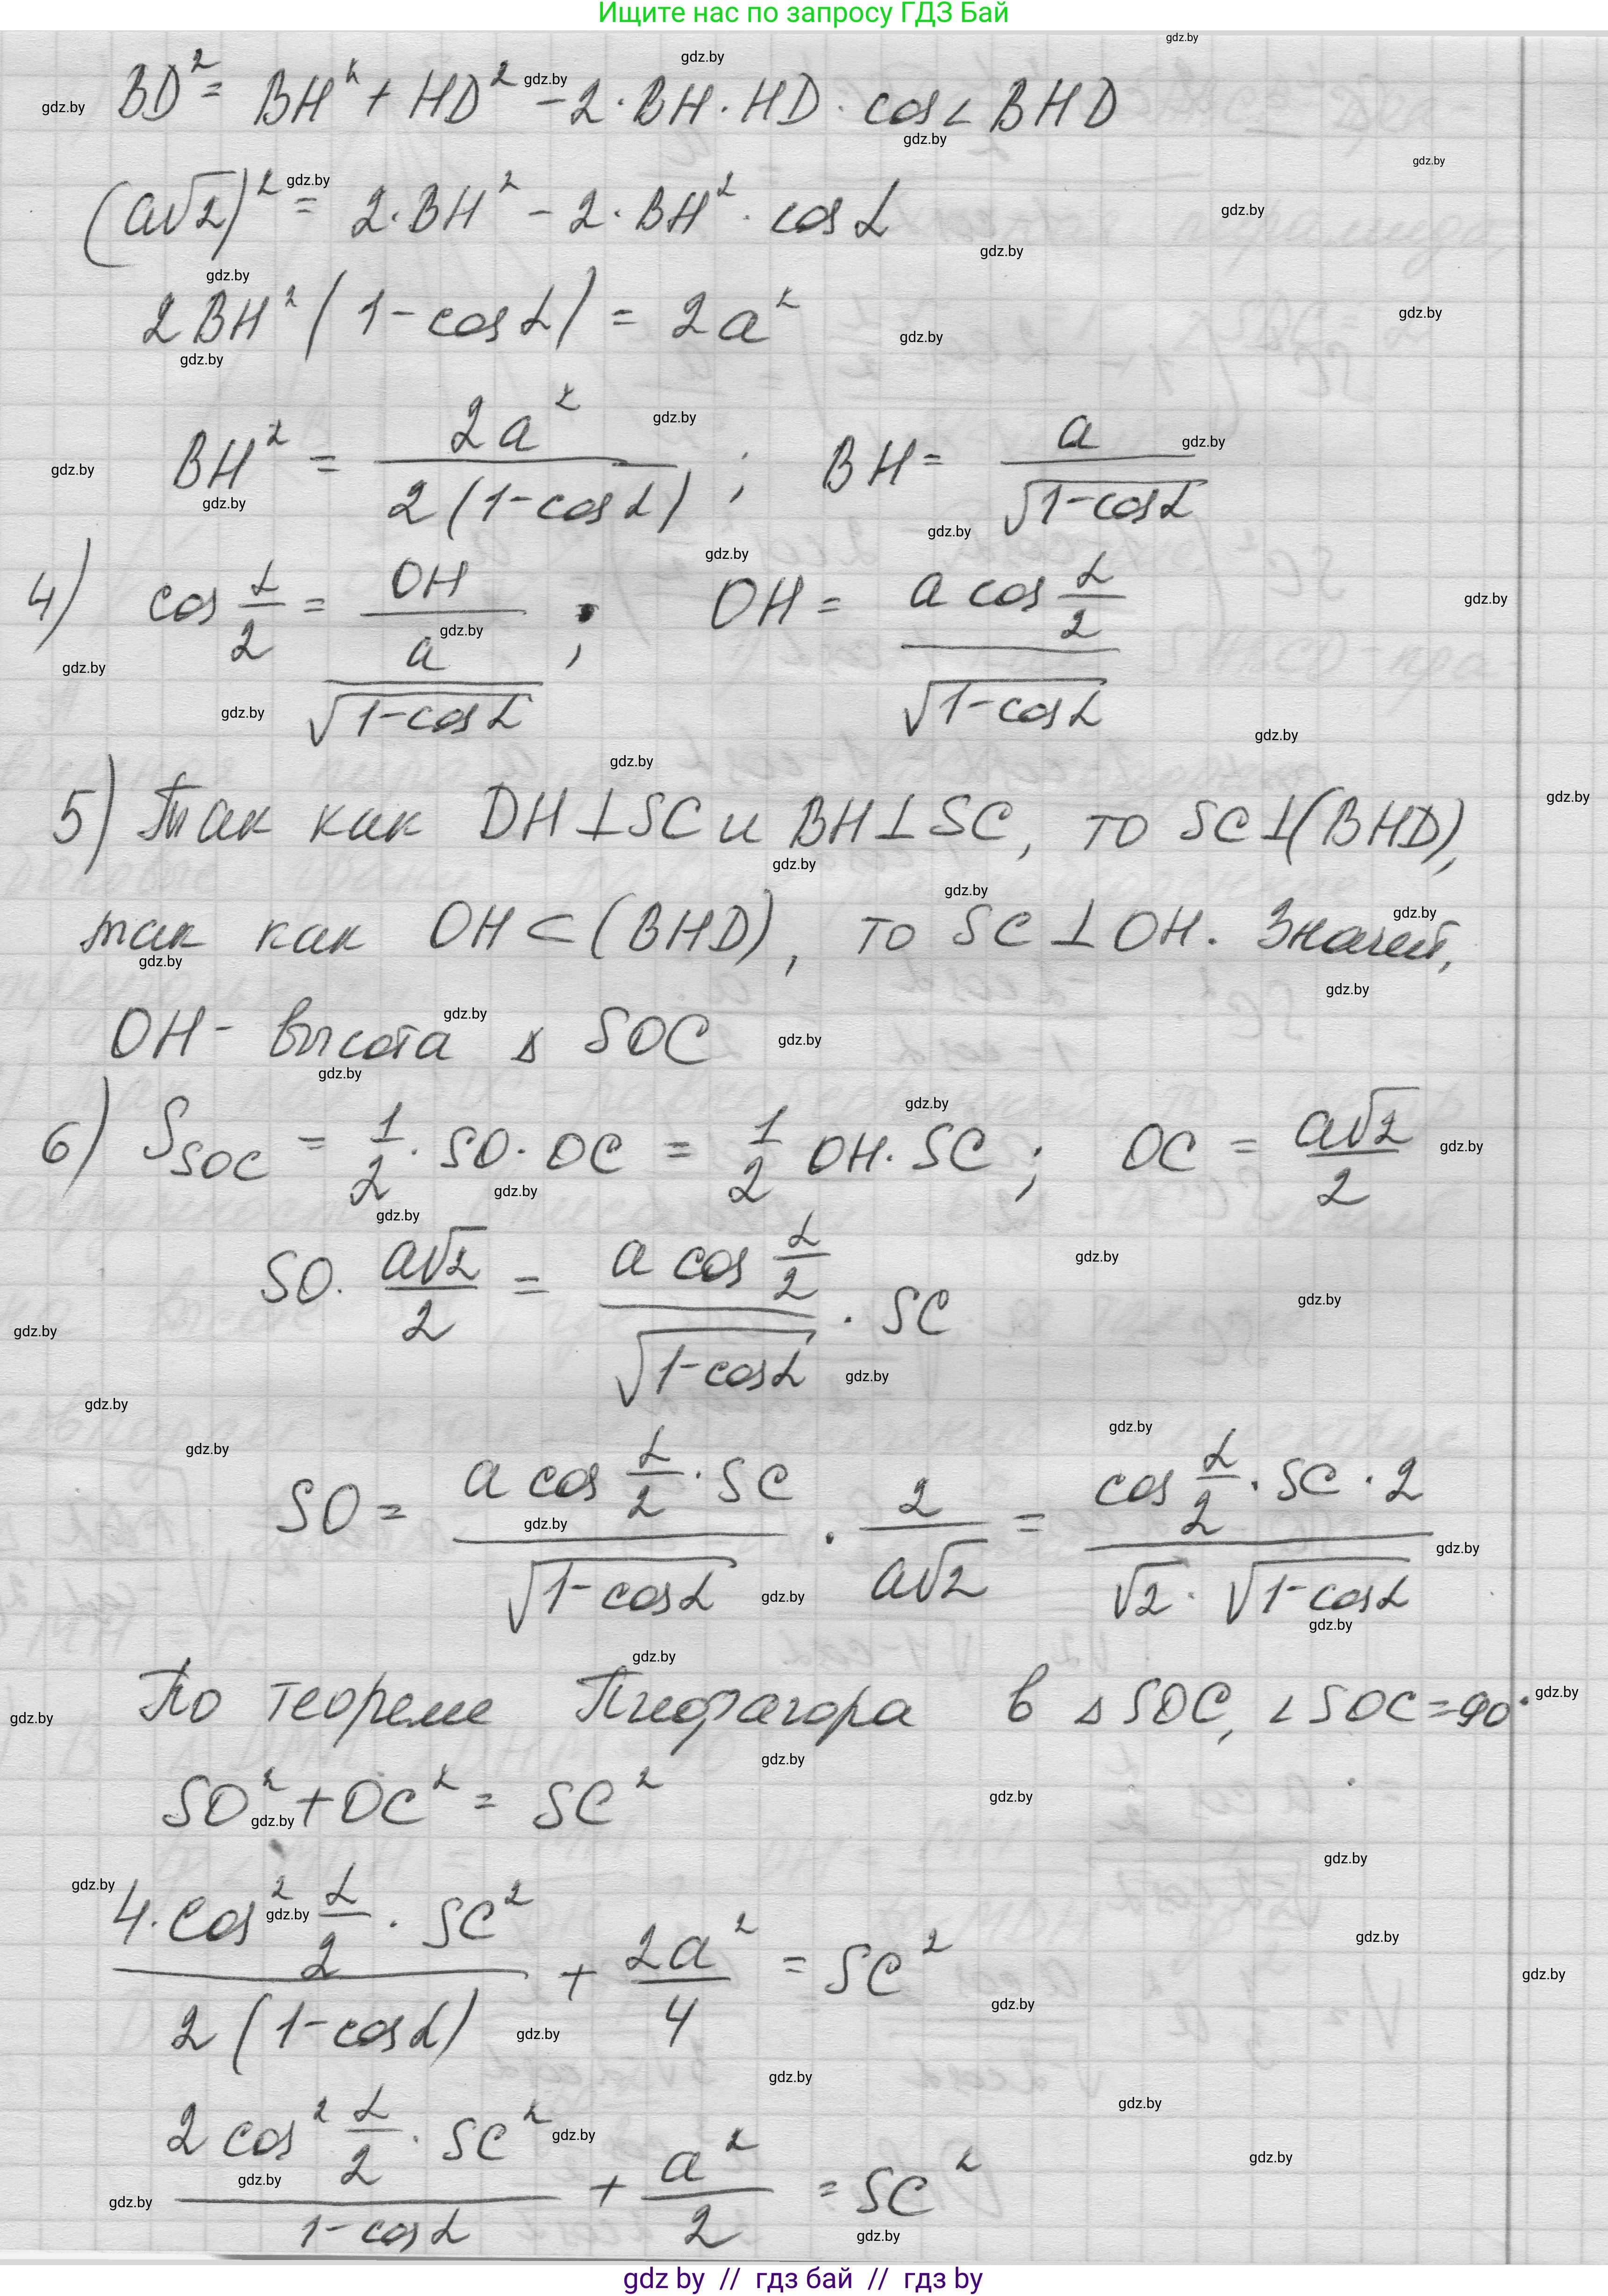 Ищите нас по запросу ГДЗ Бай
BD² = BH² + HD² - 2·BH·HD·cos∠BHD
(a√2)² = 2·BH² - 2·BH²·cosα
2BH²(1-cosα) = 2a²
BH² = 2a² / 2(1-cosα) ; BH = a / √(1-cosα)
4) cos α/2 = OH / (a / √(1-cosα)) ; OH = a cos α/2 / √(1-cosα)
5) Так как DH⊥SC и BH⊥SC, то SC⊥(BHD),
так как OH⊂(BHD), то SC⊥OH. Значит,
OH- высота △ SOC
6) S_SOC = 1/2·SO·OC = 1/2 OH·SC ; OC = a√2 / 2
SO· a√2 / 2 = a cos α/2 / √(1-cosα) · SC
SO = a cos α/2 · SC / √(1-cosα) · 2 / a√2 = cos α/2 · SC · 2 / √2·√(1-cosα)
По теореме Пифагора в △SOC, ∠SOC=90°
SO² + OC² = SC²
4·cos² α/2 · SC² / 2(1-cosα) + 2a² / 4 = SC²
2cos² α/2 · SC² / 1-cosα + a² / 2 = SC²
gdz by // гдз бай // гдз by